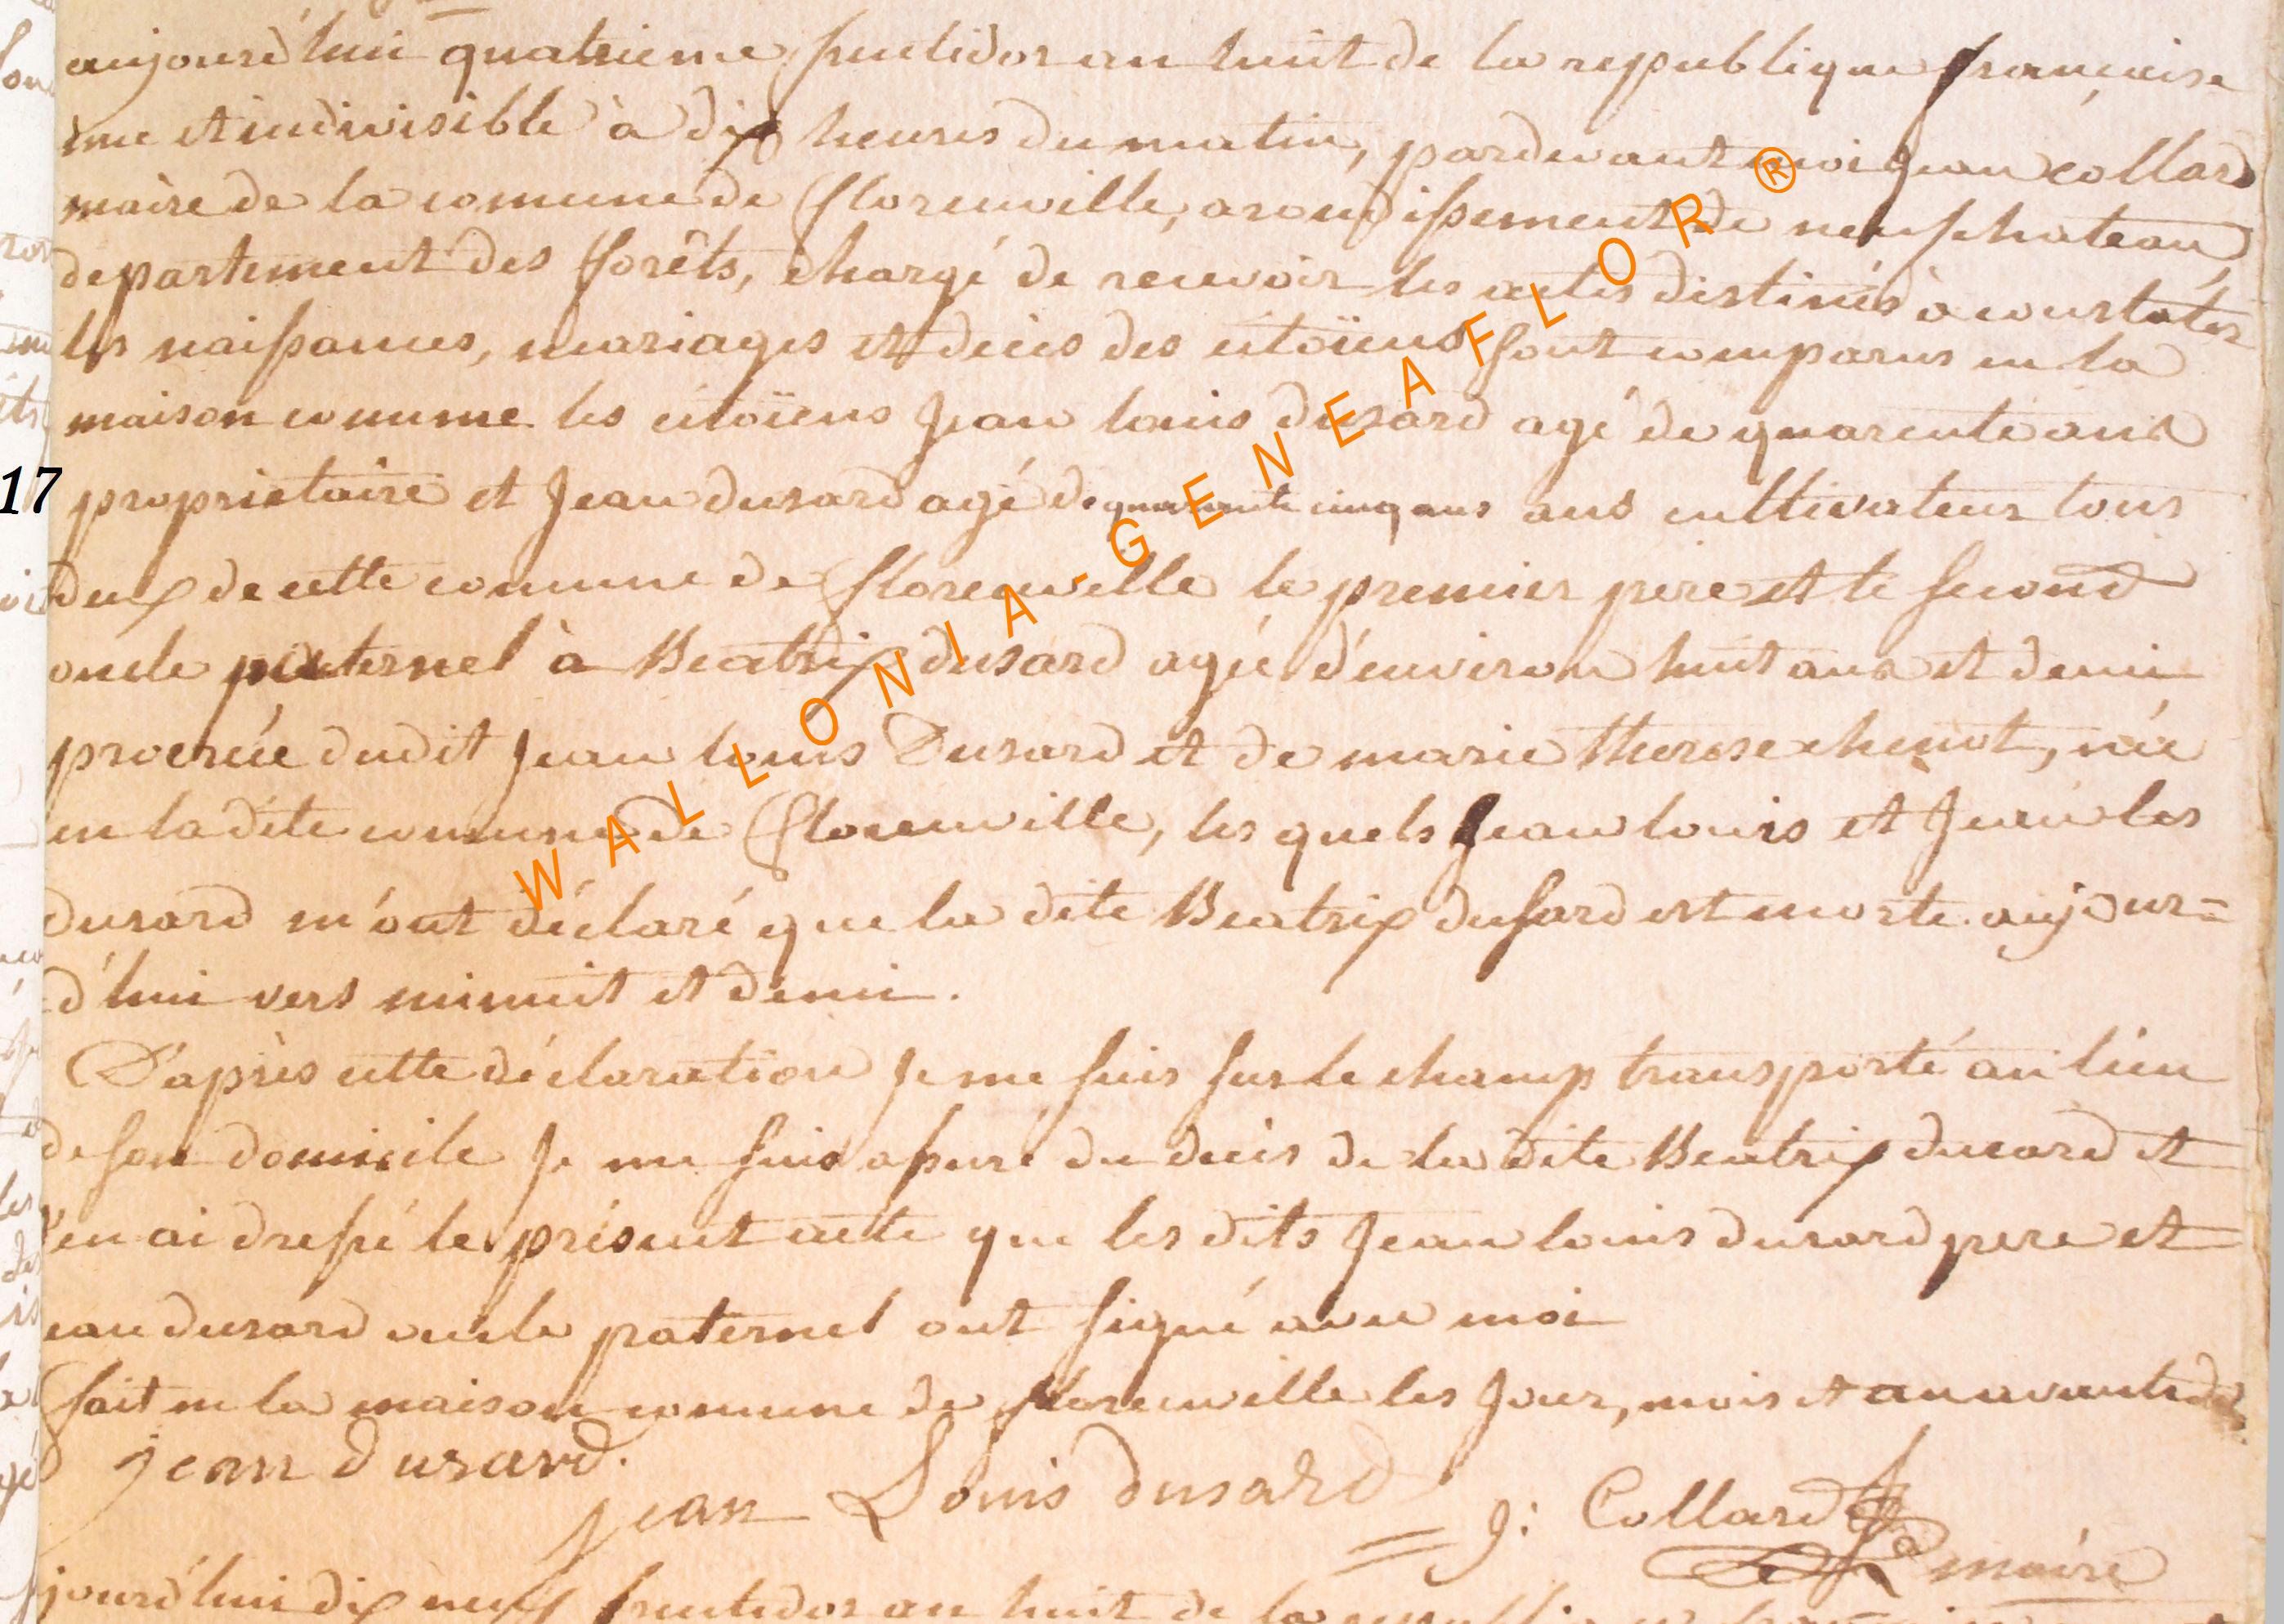 aujourd'hui quatrieme fructidor an huit de la republique françoise
une et indivisible à dix heures du matin, pardevant moi Jean collard
maire de la comune de florenville, arondissement de neufchateau
departement des forêts, chargé de recevoir les actes distinés à constater
les naissances, mariages et décès des citoïens sont comparus en la
maison comune les citoïens Jean louis dusard agé de quarente ans
17 proprietaire et Jean dusard agé de quarante cinq ans ans cultivateur tous
deux de cette comune de florenville le premier pere et le second
oncle paternel à Beatrix dusard agée d'environ huit ans et demi
procréée dudit Jean louis Dusard et de marie therese chenot, née
en la dite comune de florenville, les quels Jean louis et Jean les
dusard m'ont déclaré que la dite Beatrix dusard est morte aujour=
d'hui vers minuit et demi.
D'après cette déclaration Je me suis sur le champ transporté au lieu
de son domicile Je me suis assuré du decès de la dite Beatrix dusard et
j'en ai dressé le présent acte que les dits Jean louis dusard pere et
ean dusard oncle paternel ont signé avec moi
fait en la maison comune de florenville les Jour, mois et an avant dits
jean dusard.
jean Louis dusard
J: Collard
maire
jourd'hui dix neuf fructidor an huit de la
WALLONIA-GENEAFLOR®